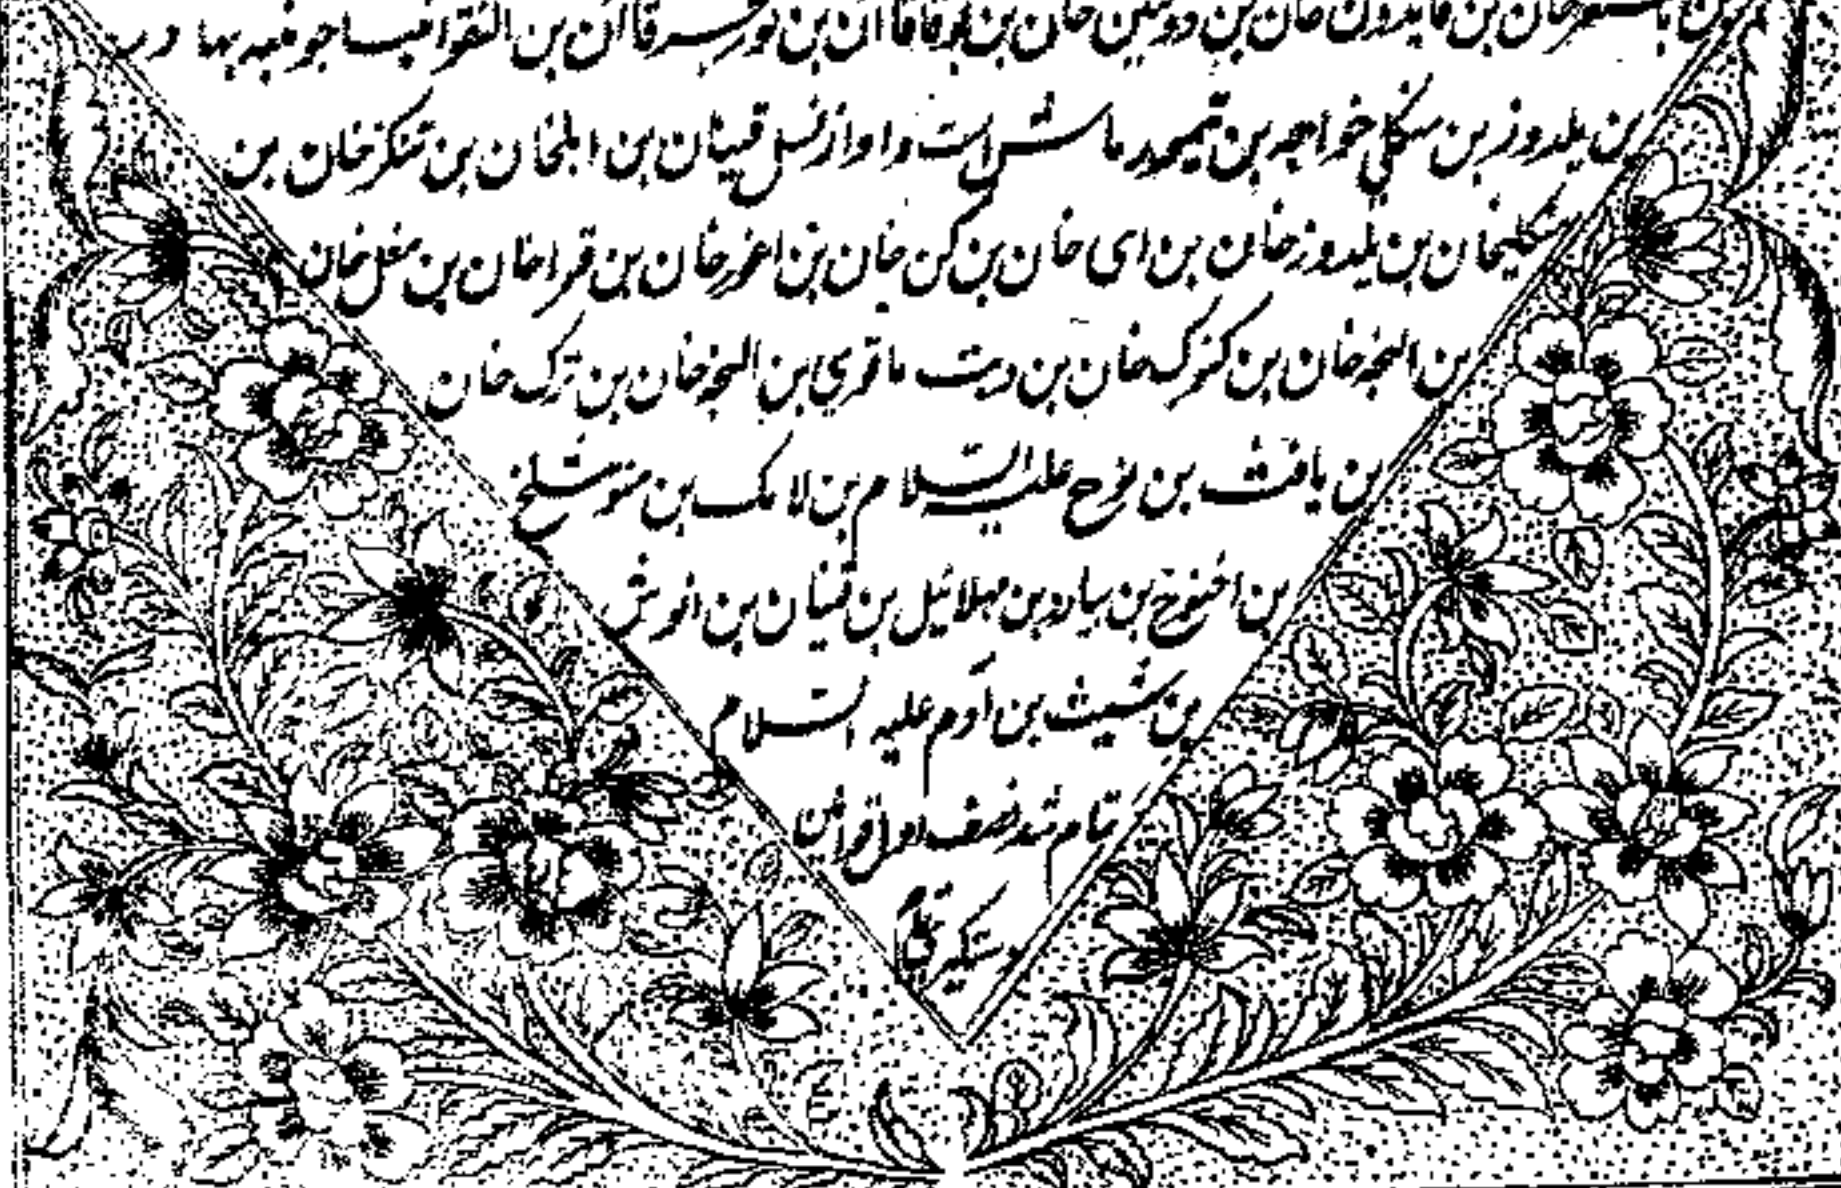 خان بن قایدون خان بن دومنین خان بن بوقا قاآن بن بوزنجر قاآن بن النقوا
بن یلدوز بن منکلی خواجه بن تیمور ماش است و او از نسل قیان بن ایلخان بن تنکز خان بن
منکلیخان بن یلدوز خان بن ای خان بن کن خان بن اغوز خان بن قراخان بن مغل خان
بن النجه خان بن کیوک خان بن دیب باقوی بن النجه خان بن ترک خان
بن یافث بن نوح علیه السلام بن لامک بن متوشلخ
بن اخنوخ بن یارد بن مهلائیل بن قینان بن انوش
بن شیث بن آدم علیه السلام
تمام شد نصف اول از